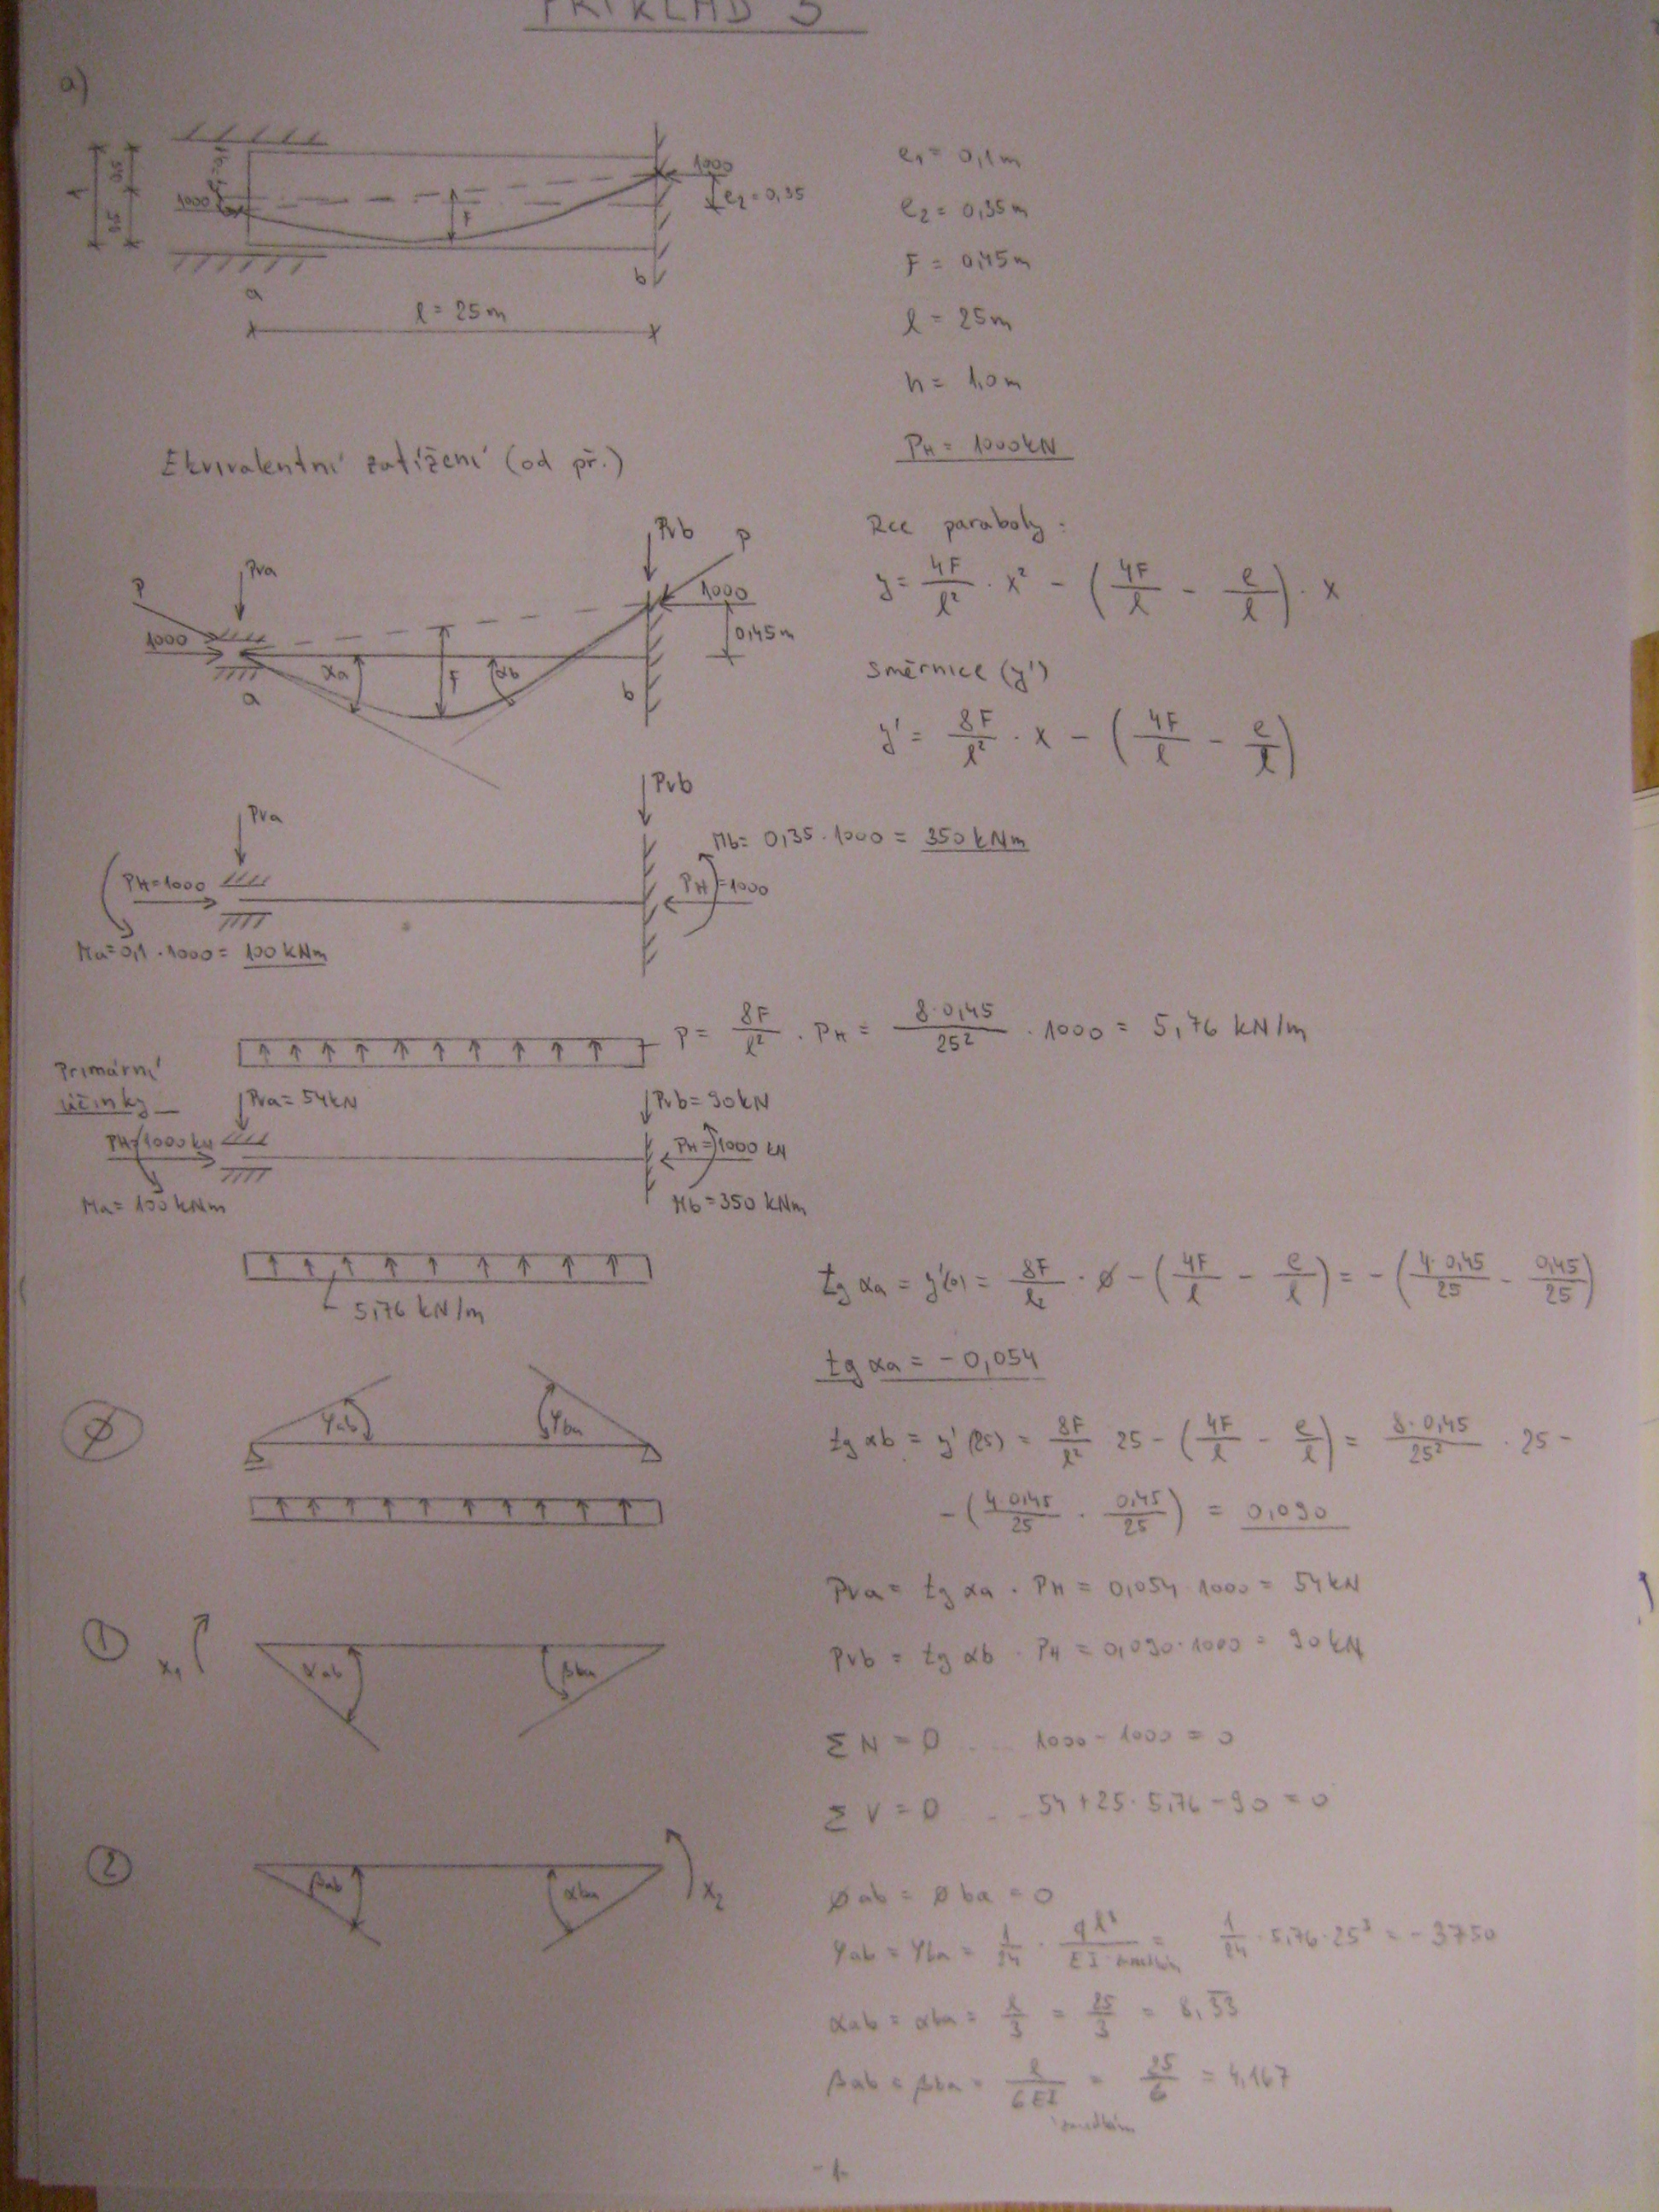 PŘÍKLAD 3
a)
1000
1000
e2 = 0,35
a
b
l = 25m
e1 = 0,1m
e2 = 0,35m
F = 0,45m
l = 25m
h = 1,0m
PH = 1000kN
Ekvivalentní zatížení (od př.)
Pva
Pvb
P
P
1000
1000
0,45m
αa
F
αb
a
b
Rce paraboly:
y = 4F/l² · x² - (4F/l - e/l) · x
Směrnice (y')
y' = 8F/l² · x - (4F/l - e/l)
Pva
Pvb
Mb = 0,35 · 1000 = 350 kNm
PH=1000
PH=1000
Ma=0,1 · 1000 = 100 kNm
p = 8F/l² · PH = 8·0,45/25² · 1000 = 5,76 kN/m
Primární
účinky
Pva = 54kN
Pvb = 90kN
PH=1000kN
PH=1000 kN
Ma = 100 kNm
Mb = 350 kNm
5,76 kN/m
tg αa = y'(0) = 8F/l² · ø - (4F/l - e/l) = -(4·0,45/25 - 0,45/25)
tg αa = -0,054
ø
φab
φba
tg αb = y'(25) = 8F/l² 25 - (4F/l - e/l) = 8·0,45/25² · 25 -
-(4·0,45/25 · 0,45/25) = 0,090
Pva = tg αa · PH = 0,054·1000 = 54kN
Pvb = tg αb · PH = 0,090·1000 = 90kN
①
x1
αab
βba
ΣN = 0 .. 1000 - 1000 = 0
ΣV = 0 .. 54 + 25·5,76 - 90 = 0
②
βab
αba
x2
øab = øba = 0
φab = φba = 1/24 · ql³/EI = 1/24 · 5,76·25³ = -3750
αab = αba = l/3 = 25/3 = 8,33
βab = βba = l/6EI = 25/6 = 4,167
-1-